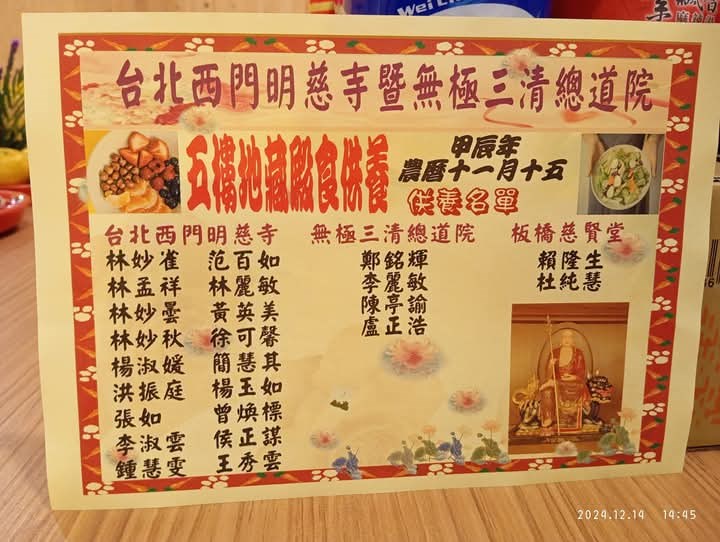 Wei Li
台北西門明慈寺暨無極三清總道院
五樓地藏殿食供養
甲辰年
農曆十一月十五
供養名單
台北西門明慈寺
林妙雀 范百如
林孟祥 林麗敏
林妙曇 黃英美
林妙秋 徐可馨
楊淑媛 簡慧其
洪振庭 楊玉如
張如 曾煥標
李淑雲 侯正謀
鍾慧雯 王秀雲
無極三清總道院
鄭銘輝
李麗敏
陳亭諭
盧正浩
板橋慈賢堂
賴隆生
杜純慧
2024.12.14 14:45